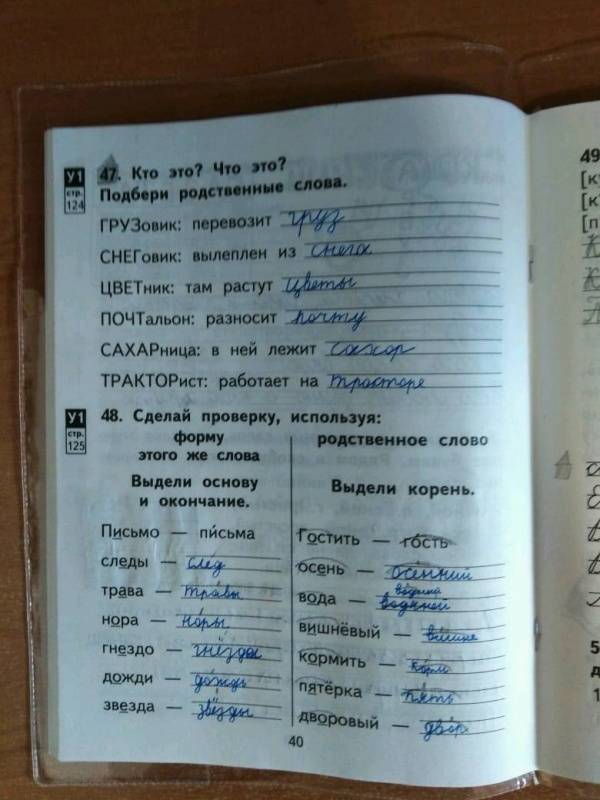 У1
стр.
124
47. Кто это? Что это?
Подбери родственные слова.
ГРУЗовик: перевозит груз
СНЕГовик: вылеплен из снега
ЦВЕТник: там растут цветы
ПОЧТальон: разносит почту
САХАРница: в ней лежит сахар
ТРАКТОРист: работает на тракторе
У1
стр.
125
48. Сделай проверку, используя:
форму
этого же слова
Выдели основу
и окончание.
Письмо — пи́сьма
следы — след
трава — тра́вы
нора — но́ры
гнездо — гнёзда
дожди — дождь
звезда — звёзды
родственное слово
Выдели корень.
Гостить — гость
осень — осенний
во́дный
вода — водяной
вишнёвый —
кормить — корм
пятёрка — пять
дворовый — двор
40
49
[к
[к
[п
5
д
1